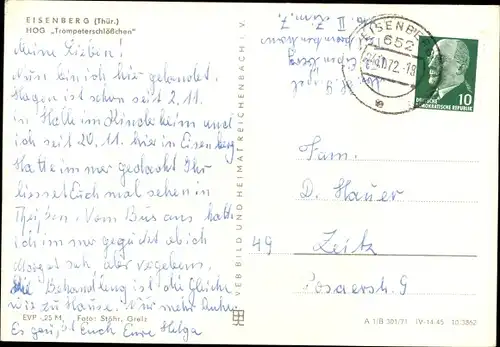 EISENBERG (Thür.)
HOG „Trompeterschlößchen"
Meine Lieben!
Nun bin ich hier gelandet.
Hagen ist schon seit 2.11.
in Halle im Kinderheim und
ich seit 20.11. hier in Eisenberg
Hatte immer gedacht Ihr
liesset Euch mal sehen in
Theißen. Vom Bus aus hatte
ich immer geguckt ob ich
Margot seh aber vergebens.
Die Behandlung ist die Gleiche
wie zu Hause. Nur mehr Ruhe.
Es grüßt Euch Eure Helga
EVP -,25 M, Foto: Stöhr, Greiz
VEB BILD UND HEIMAT REICHENBACH i. V.
EISENBERG
652
.72.-19
DEUTSCHE
DEMOKRATISCHE REPUBLIK
10
Fam.
D. Hauer
49 Zeitz
Posaerstr. 9
A 1/B 301/71 IV-14-45 10 3862